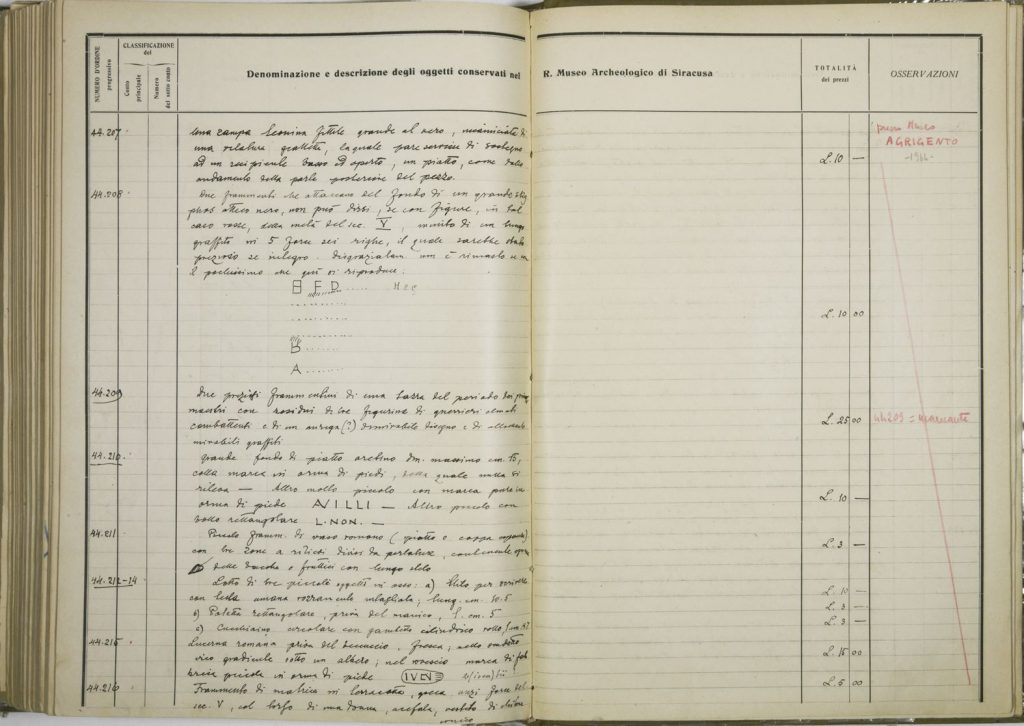 NUMERO D'ORDINE progressivo
CLASSIFICAZIONE del
Conto principale
Numero del sotto conto
Denominazione e descrizione degli oggetti conservati nel R. Museo Archeologico di Siracusa
TOTALITÀ dei prezzi
OSSERVAZIONI
44.207
Una zampa leonina fittile grande al vero, verniciata di
una velatura, la quale pare servisse di sostegno
ad un recipiente basso ed aperto, un piatto, come dallo
andamento della parte posteriore del pezzo.
L. 10 —
presso Museo
AGRIGENTO
-1966-
44.208
Due frammenti che attaccano del fondo di un grande
phos attico nero, non può dirsi, se con figure, in tal
caso rosse, della metà del sec. V, munito di un lungo
graffito in 5 forse sei righe, il quale sarebbe stato
prezioso se integro. Disgraziatam. non è rimasto se non
il pochissimo che qui si riproduce:
B F D .....
..........
..........
B ........
A ........
L. 10 00
44.209
Due frammentini di una tazza del periodo dei
maestri con residui di tre figurine di guerrieri elmati
combattenti e di un auriga (?) di mirabile disegno e di
mirabili graffiti
L. 25 00
44209 = mancante
44.210
Grande fondo di piatto aretino dm. massimo cm. 15,
colla marca in orma di piedi, della quale nulla si
rileva — Altro molto piccolo con marca pure in
orma di piede AVILLI — Altro piccolo con
bollo rettangolare L. NON. —
L. 10 —
44.211
Piccolo framm. di vaso romano (piatto o coppa
con tre zone a rilievi divisi da perlature,
delle o fruttini con lungo stelo
L. 3 —
44.212-14
Lotto di tre piccoli oggetti in osso: a) Stilo per scrivere
con testa umana rozzamente intagliata; lung. cm. 10.5
b) Paletta rettangolare, priva del manico, l. cm. 5
c) Cucchiaino circolare con gambetto cilindrico rotto
L. 10 —
L. 3 —
L. 3 —
44.215
Lucerna romana priva del beccuccio, fresca; nello
sotto un albero; nel rovescio marca di fab
brica piccola in orma di piede
L. 15 00
44.216
Frammento di matrice in terracotta, greca anzi forse del
sec. V, col torso di una donna, acefala, vestita di chitone
L. 5 00